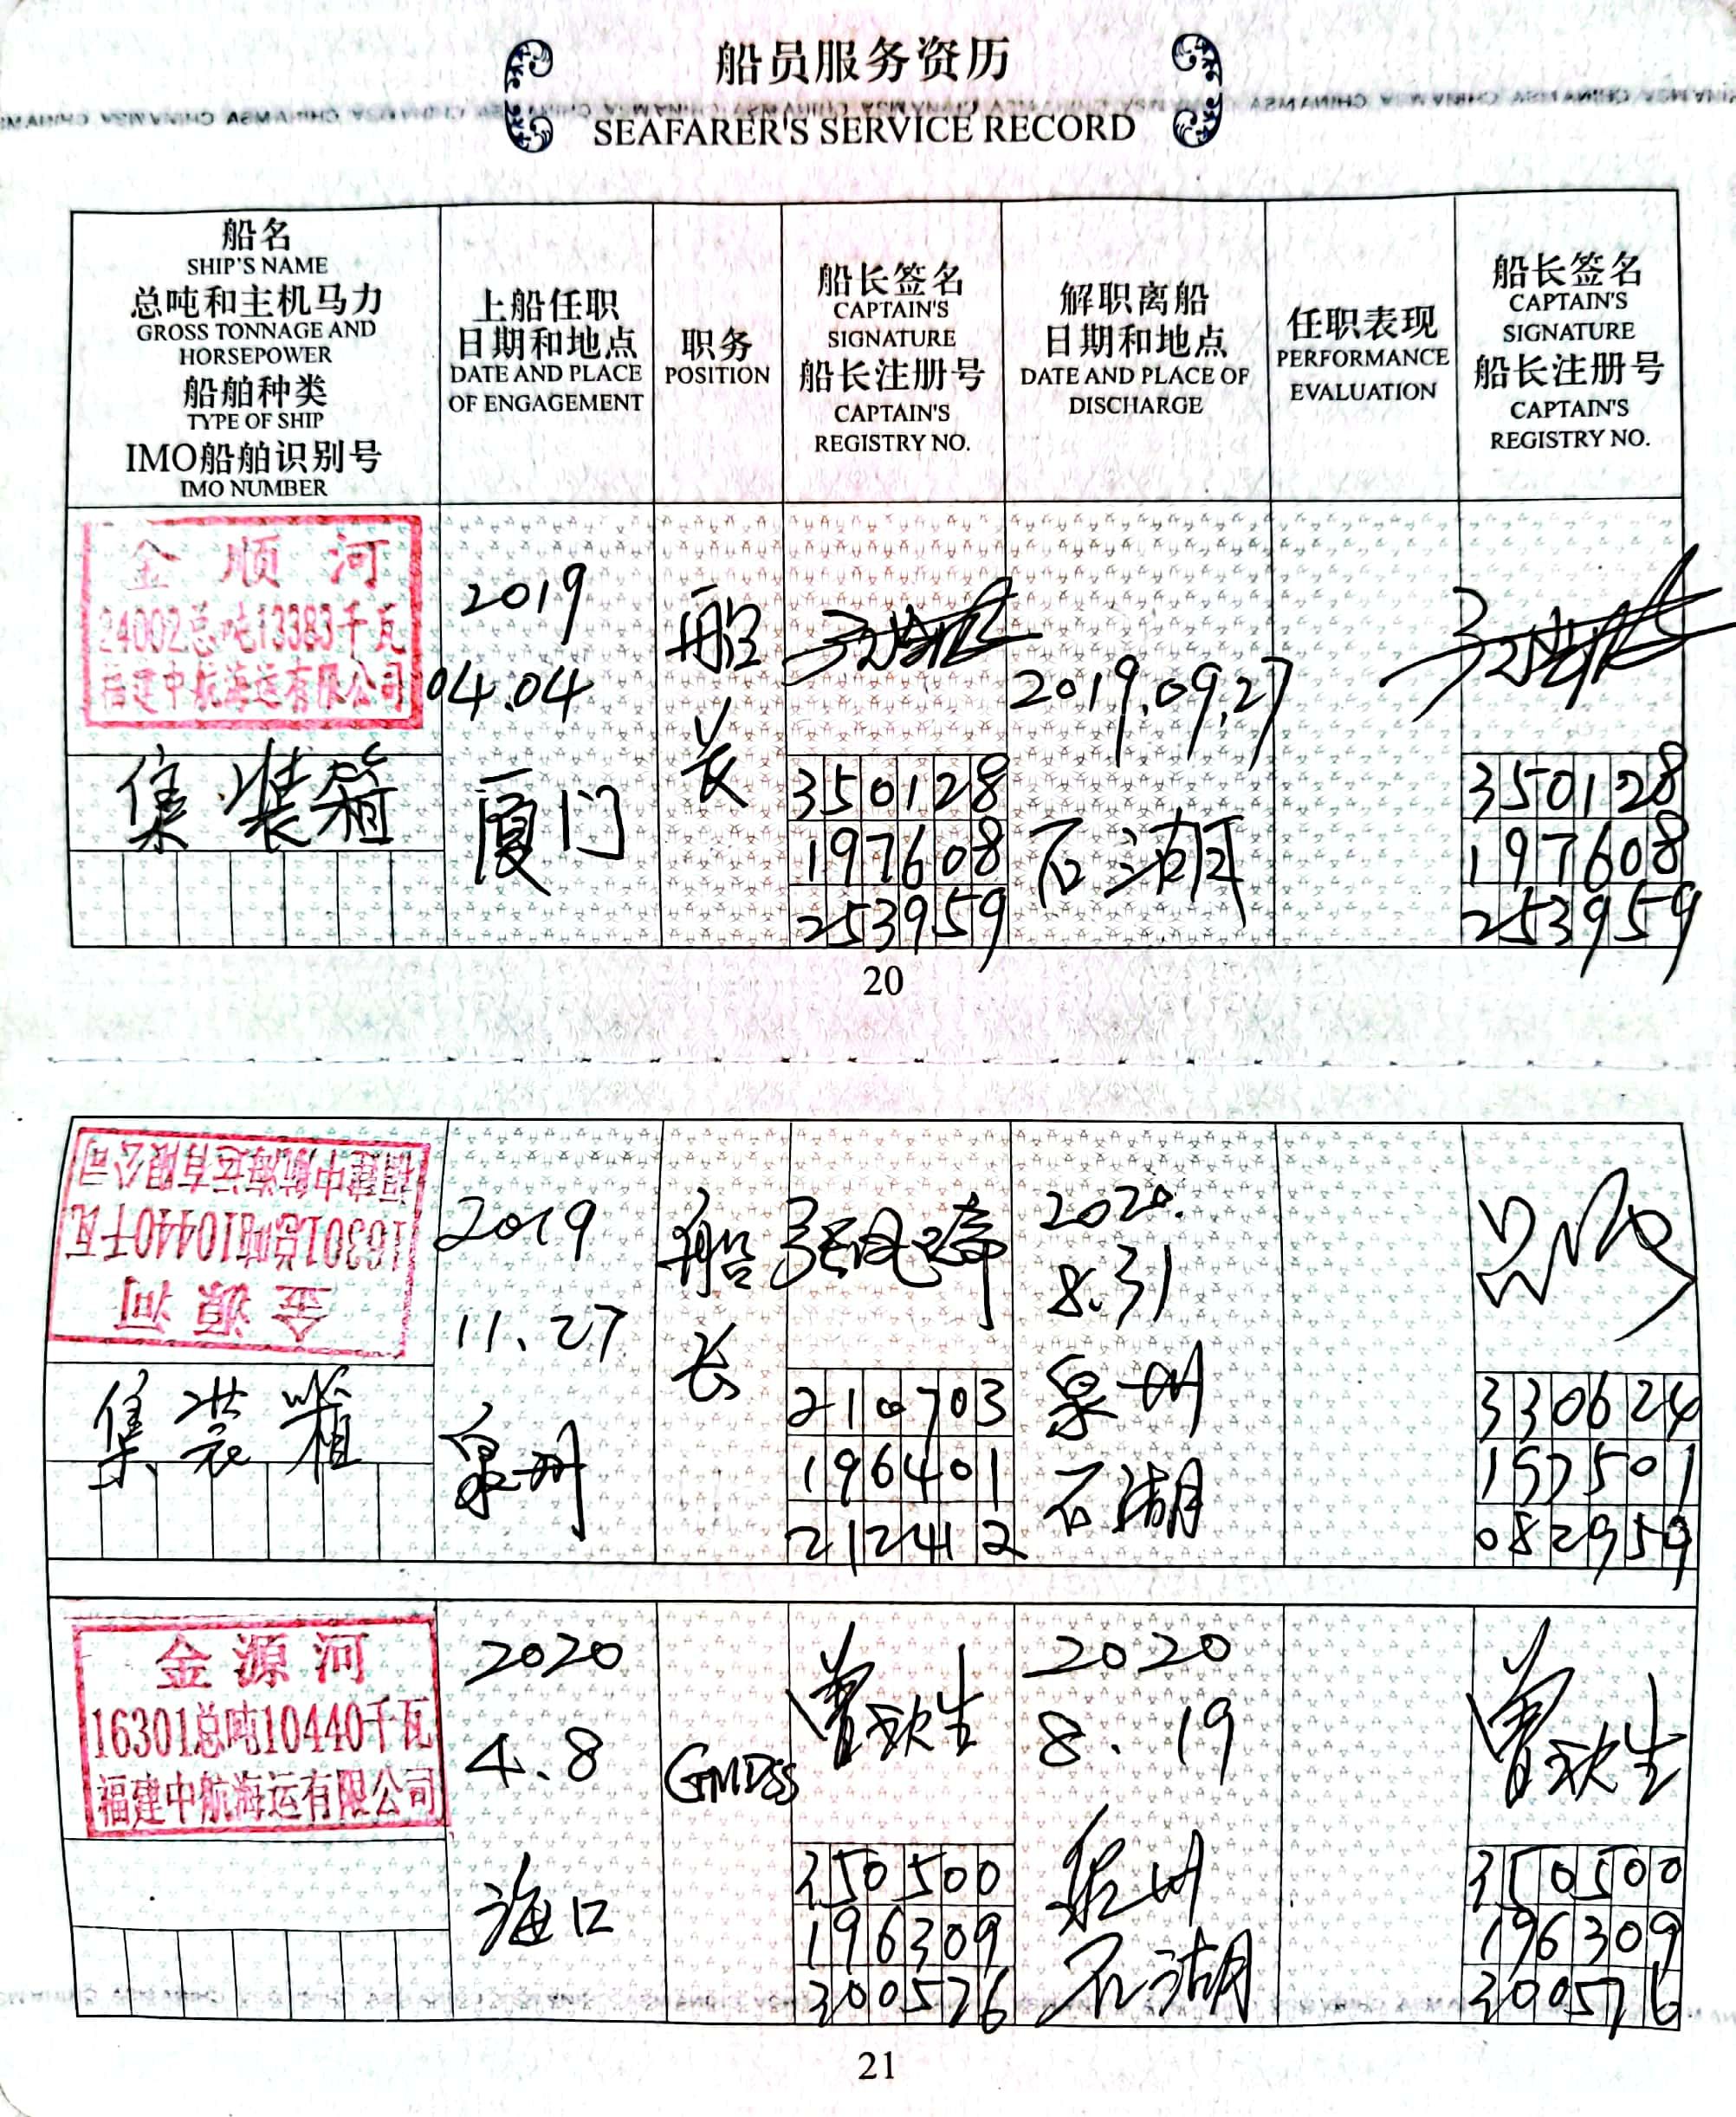 船员服务资历
SEAFARER'S SERVICE RECORD
船名
SHIP'S NAME
总吨和主机马力
GROSS TONNAGE AND
HORSEPOWER
船舶种类
TYPE OF SHIP
IMO船舶识别号
IMO NUMBER
上船任职
日期和地点
DATE AND PLACE
OF ENGAGEMENT
职务
POSITION
船长签名
CAPTAIN'S
SIGNATURE
船长注册号
CAPTAIN'S
REGISTRY NO.
解职离船
日期和地点
DATE AND PLACE OF
DISCHARGE
任职表现
PERFORMANCE
EVALUATION
船长签名
CAPTAIN'S
SIGNATURE
船长注册号
CAPTAIN'S
REGISTRY NO.
金顺河
24002总吨13383千瓦
福建中航海运有限公司
集装箱
2019
04.04
厦门
船
长
350128
197608
253959
2019.09.27
石湖
350128
197608
253959
20
金源河
16301总吨10440千瓦
福建中航海运有限公司
集装箱
2019
11.27
泉州
船
长
210703
196401
212412
2020.
8.31
泉州
石湖
330624
197501
082959
金源河
16301总吨10440千瓦
福建中航海运有限公司
2020
4.8
海口
GMDSS
曾秋生
350500
196309
300576
2020
8.19
泉州
石湖
曾秋生
350500
196309
300576
21